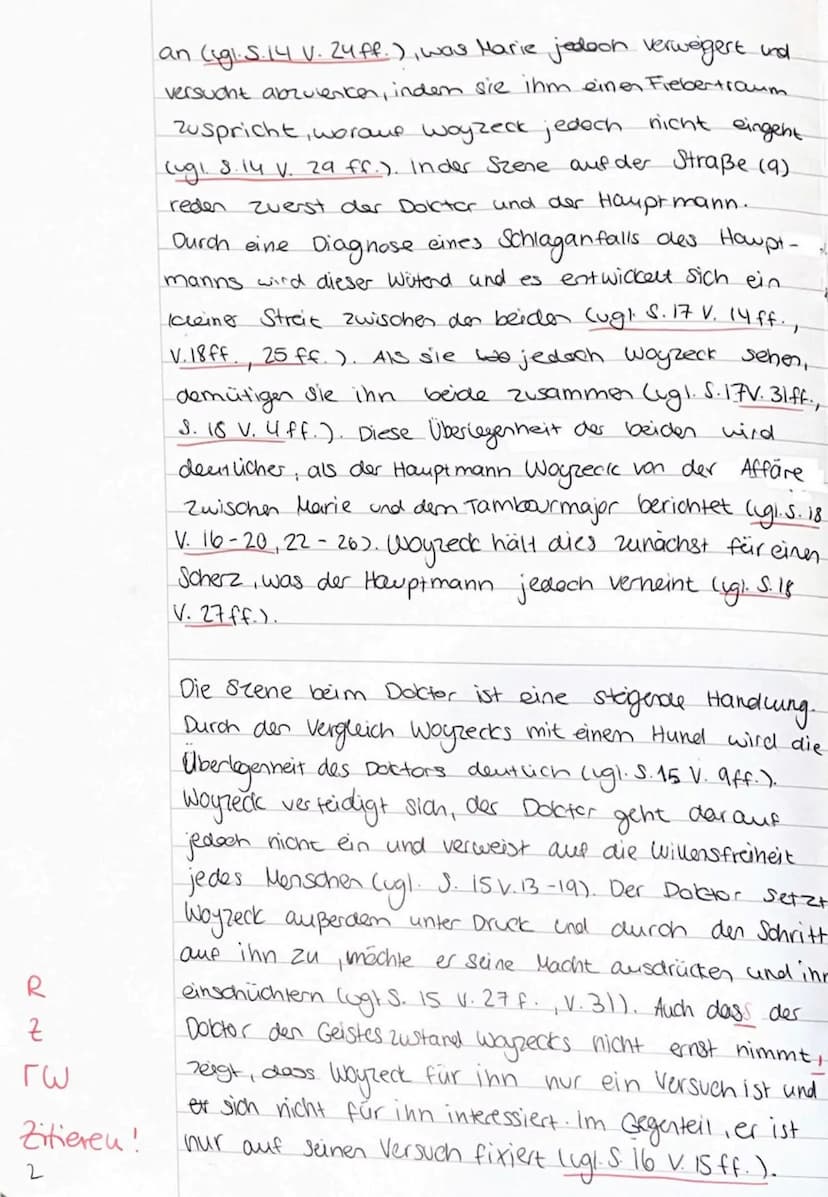 an (vgl. S.14 V. 24ff.), was Marie jedoch verweigert und
versucht abzulenken, indem sie ihm einen Fiebertraum
zuspricht, worauf Woyzeck jedoch nicht eingeht
(vgl. S.14 V. 29 ff.). In der Szene auf der Straße (9)
reden zuerst der Doktor und der Hauptmann.
Durch eine Diagnose eines Schlaganfalls des Haupt-
manns wird dieser wütend und es entwickelt sich ein
kleiner Streit zwischen den beiden (vgl. S. 17 V. 14ff.,
V.18ff., 25 ff.). Als sie jedoch Woyzeck sehen,
demütigen sie ihn beide zusammen (vgl. S.17 V. 31ff.,
S. 18 V. 4ff.). Diese Überlegenheit der beiden wird
deutlicher, als der Hauptmann Woyzeck von der Affäre
zwischen Marie und dem Tambourmajor berichtet (vgl. S. 18
V. 16-20, 22-26). Woyzeck hält dies zunächst für einen
Scherz, was der Hauptmann jedoch verneint (vgl. S. 18
V. 27ff.).
Die Szene beim Doktor ist eine steigende Handlung.
Durch den Vergleich Woyzecks mit einem Hund wird die
Überlegenheit des Doktors deutlich (vgl. S. 15 V. 9ff.).
Woyzeck verteidigt sich, der Doktor geht darauf
jedoch nicht ein und verweist auf die Willensfreiheit
jedes Menschen (vgl. S. 15 V. 13-19). Der Doktor setzt
Woyzeck außerdem unter Druck und durch den Schritt
auf ihn zu, möchte er seine Macht ausdrücken und ihn
einschüchtern (vgl S. 15 V. 27 f., V. 31). Auch dass der
Doktor den Geisteszustand Woyzecks nicht ernst nimmt,
zeigt, dass Woyzeck für ihn nur ein Versuch ist und
er sich nicht für ihn interessiert. Im Gegenteil, er ist
nur auf seinen Versuch fixiert (vgl. S. 16 V. 15 ff.).
R
Z
ΓW
Zitieren!
2